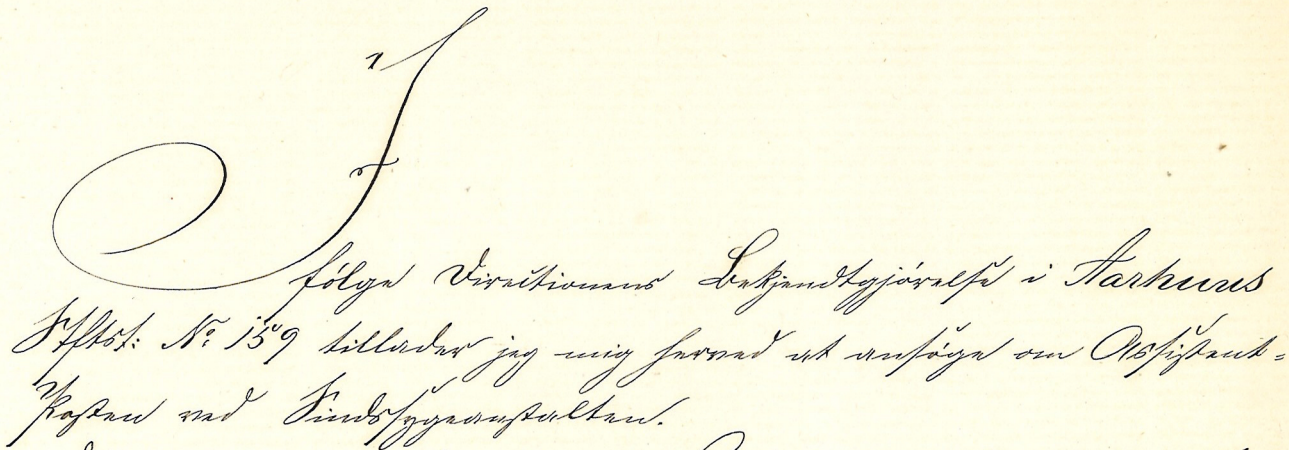 Ifölge Directionens Bekjendtgjörelse i Aarhuus
Stftst: No. 159 tillader jeg mig herved at ansöge om Assistent=
Posten ved Sindssygeanstalten.